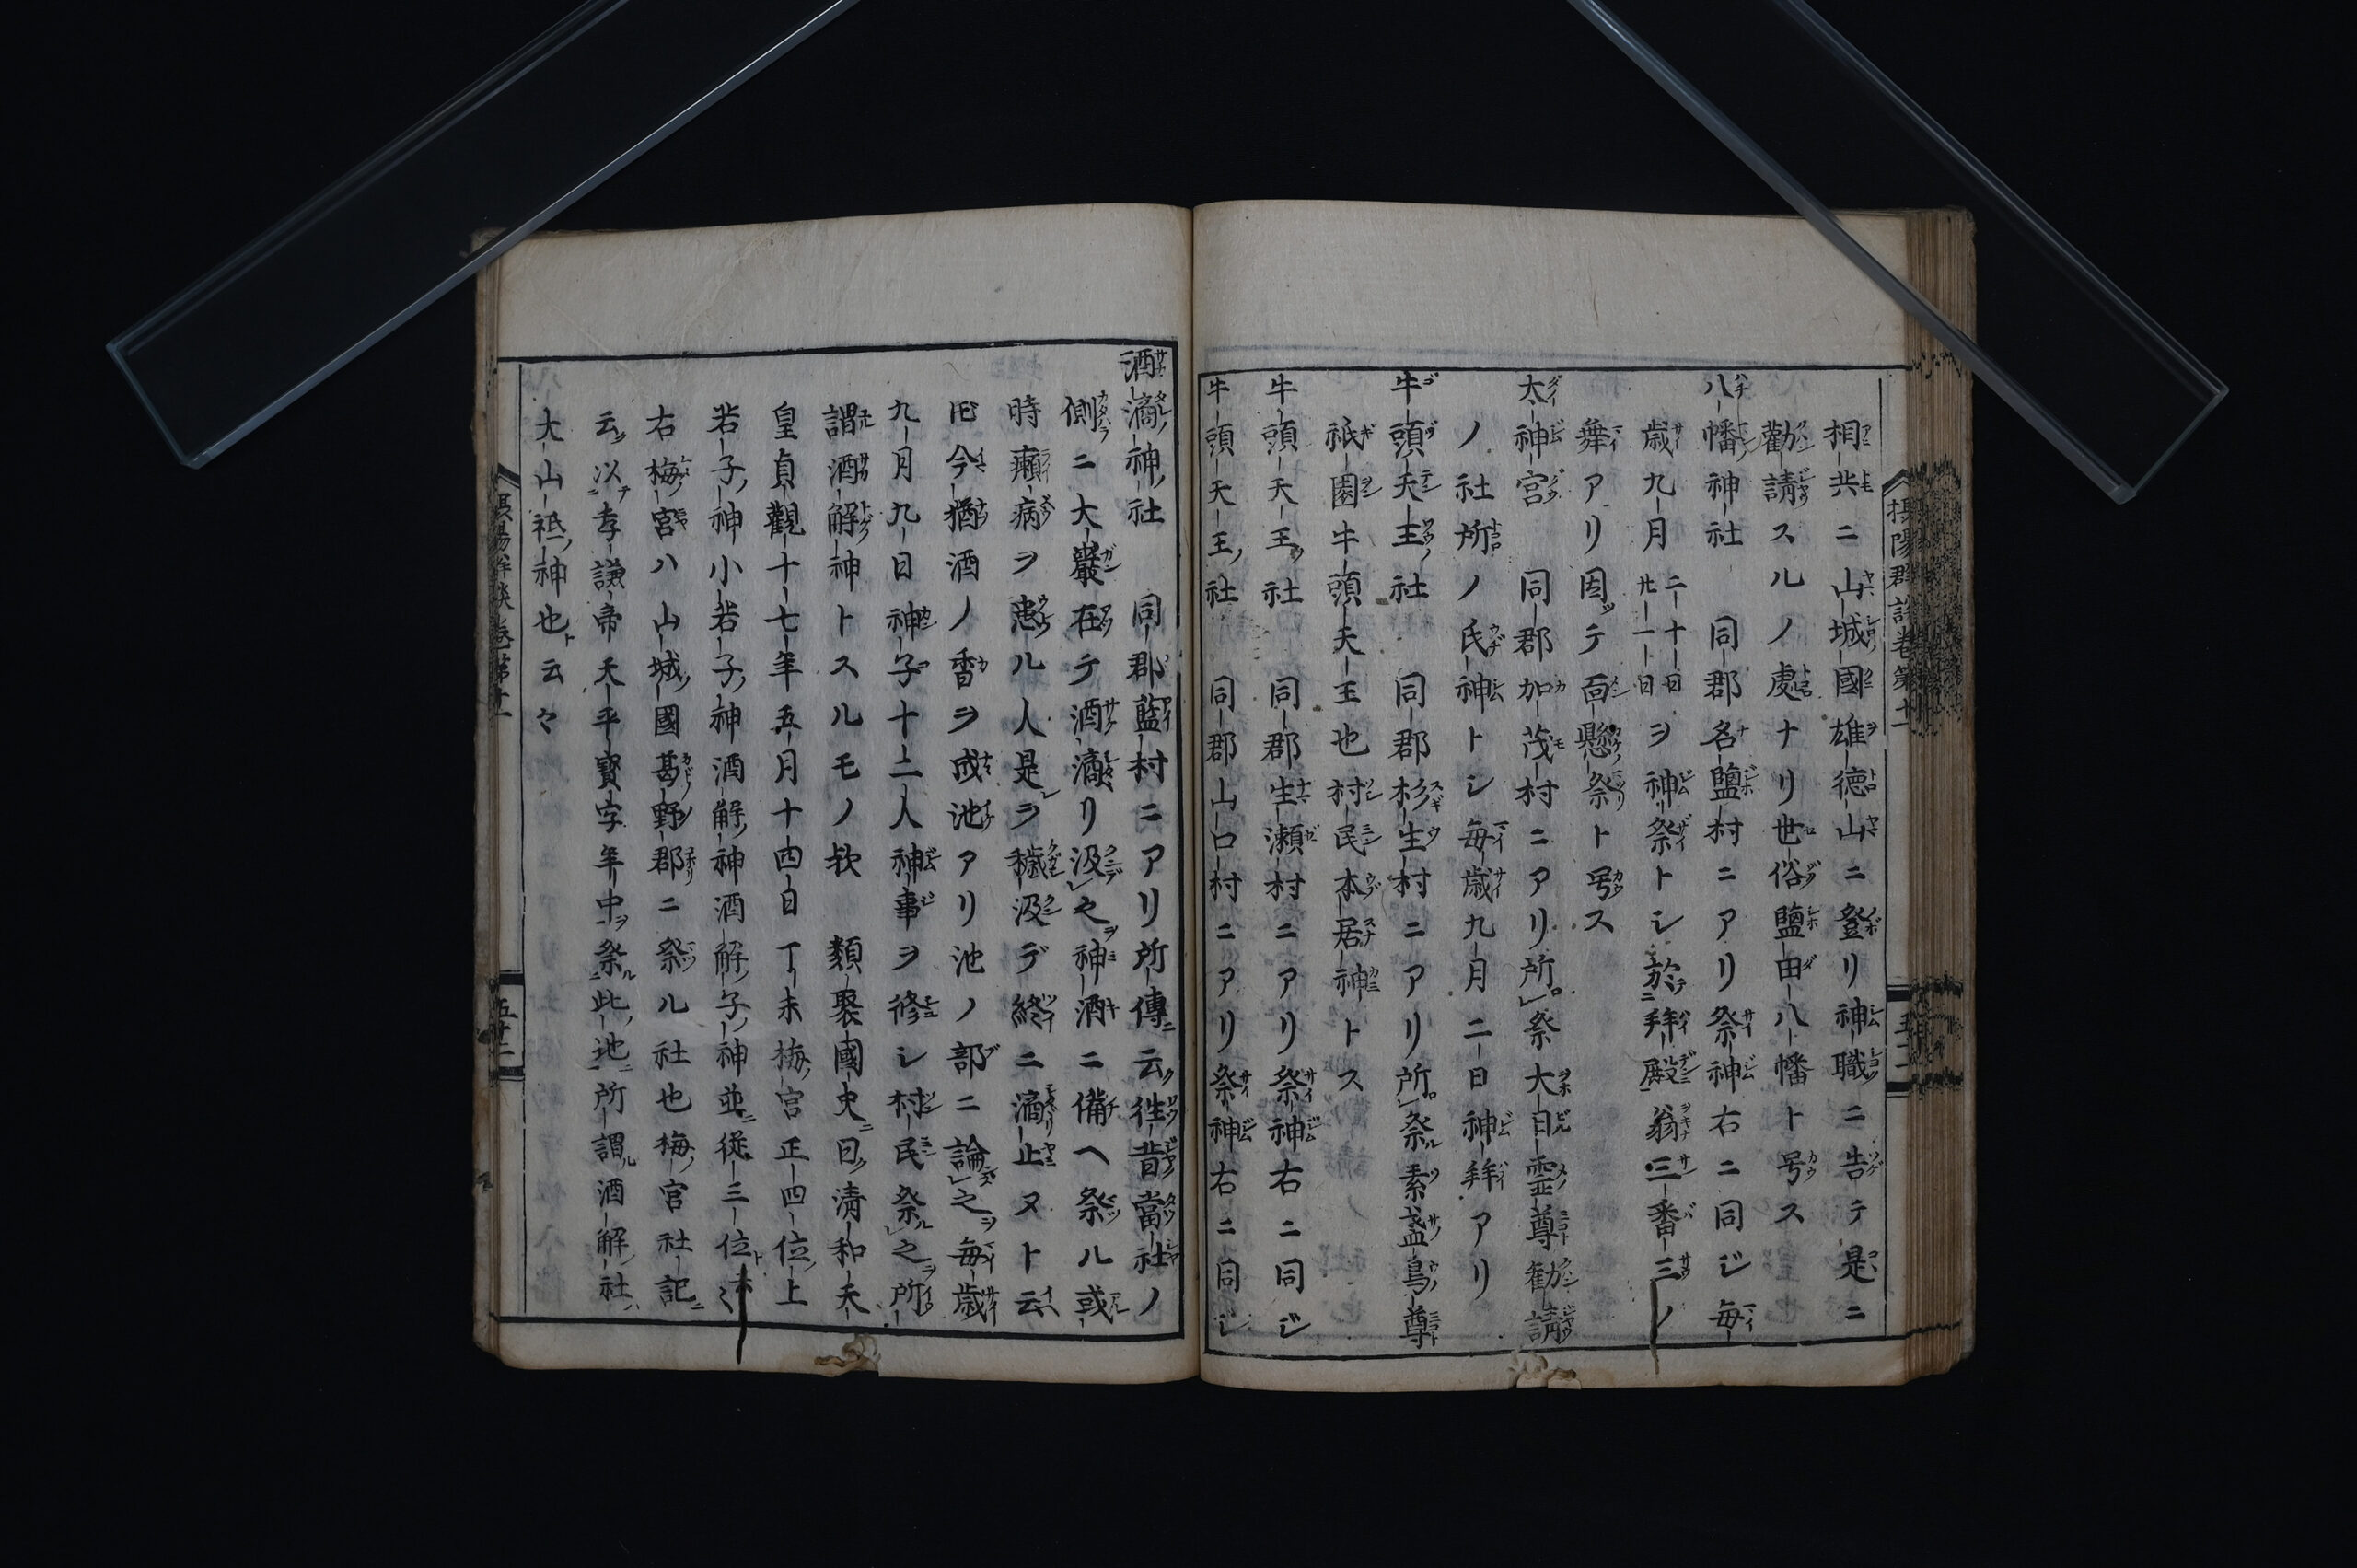 相共ニ山城國雄徳山ニ登リ神職ニ告テ是ニ
勸請スルノ處ナリ世俗鹽田八幡ト号ス
八幡神社 同郡名鹽村ニアリ祭神右ニ同ジ毎
歳九月二十日廿一日ヲ神祭トシ於拜殿翁三番三ノ
舞アリ因テ面懸祭ト号ス
大神宮 同郡加茂村ニアリ所祭大日霊尊勧請
ノ社所ノ氏神トシ毎歳九月二日神拜アリ
牛頭天王社 同郡杉生村ニアリ所祭素盞烏尊
祇園牛頭天王也村民本居神トス
牛頭天王社 同郡生瀬村ニアリ祭神右ニ同ジ
牛頭天王社 同郡山口村ニアリ祭神右ニ同ジ
摂陽群談巻第十一
酒滴神社 同郡藍村ニアリ所傳云徃昔當社ノ
側ニ大巖在テ酒滴リ汲之神酒ニ備ヘ祭ル或
時癩病ヲ患ル人是ヲ穢汲デ終ニ滴止ヌト云
𪜈今猶酒ノ香ヲ成池アリ池ノ部ニ論之毎歳
九月九日神子十二人神事ヲ修シ村民祭之所
謂酒解神トスルモノ欤 類聚國史曰清和天
皇貞觀十七年五月十四日丁未梅宮正四位上
若子神小若子神酒解神酒解子神並從三位
右梅宮ハ山城國葛野郡ニ祭ル社也梅宮社記
云以孝謙帝天平寳字年中祭此地所謂酒解社
大山祗神也云々
摂陽群談巻第十一
五廿二